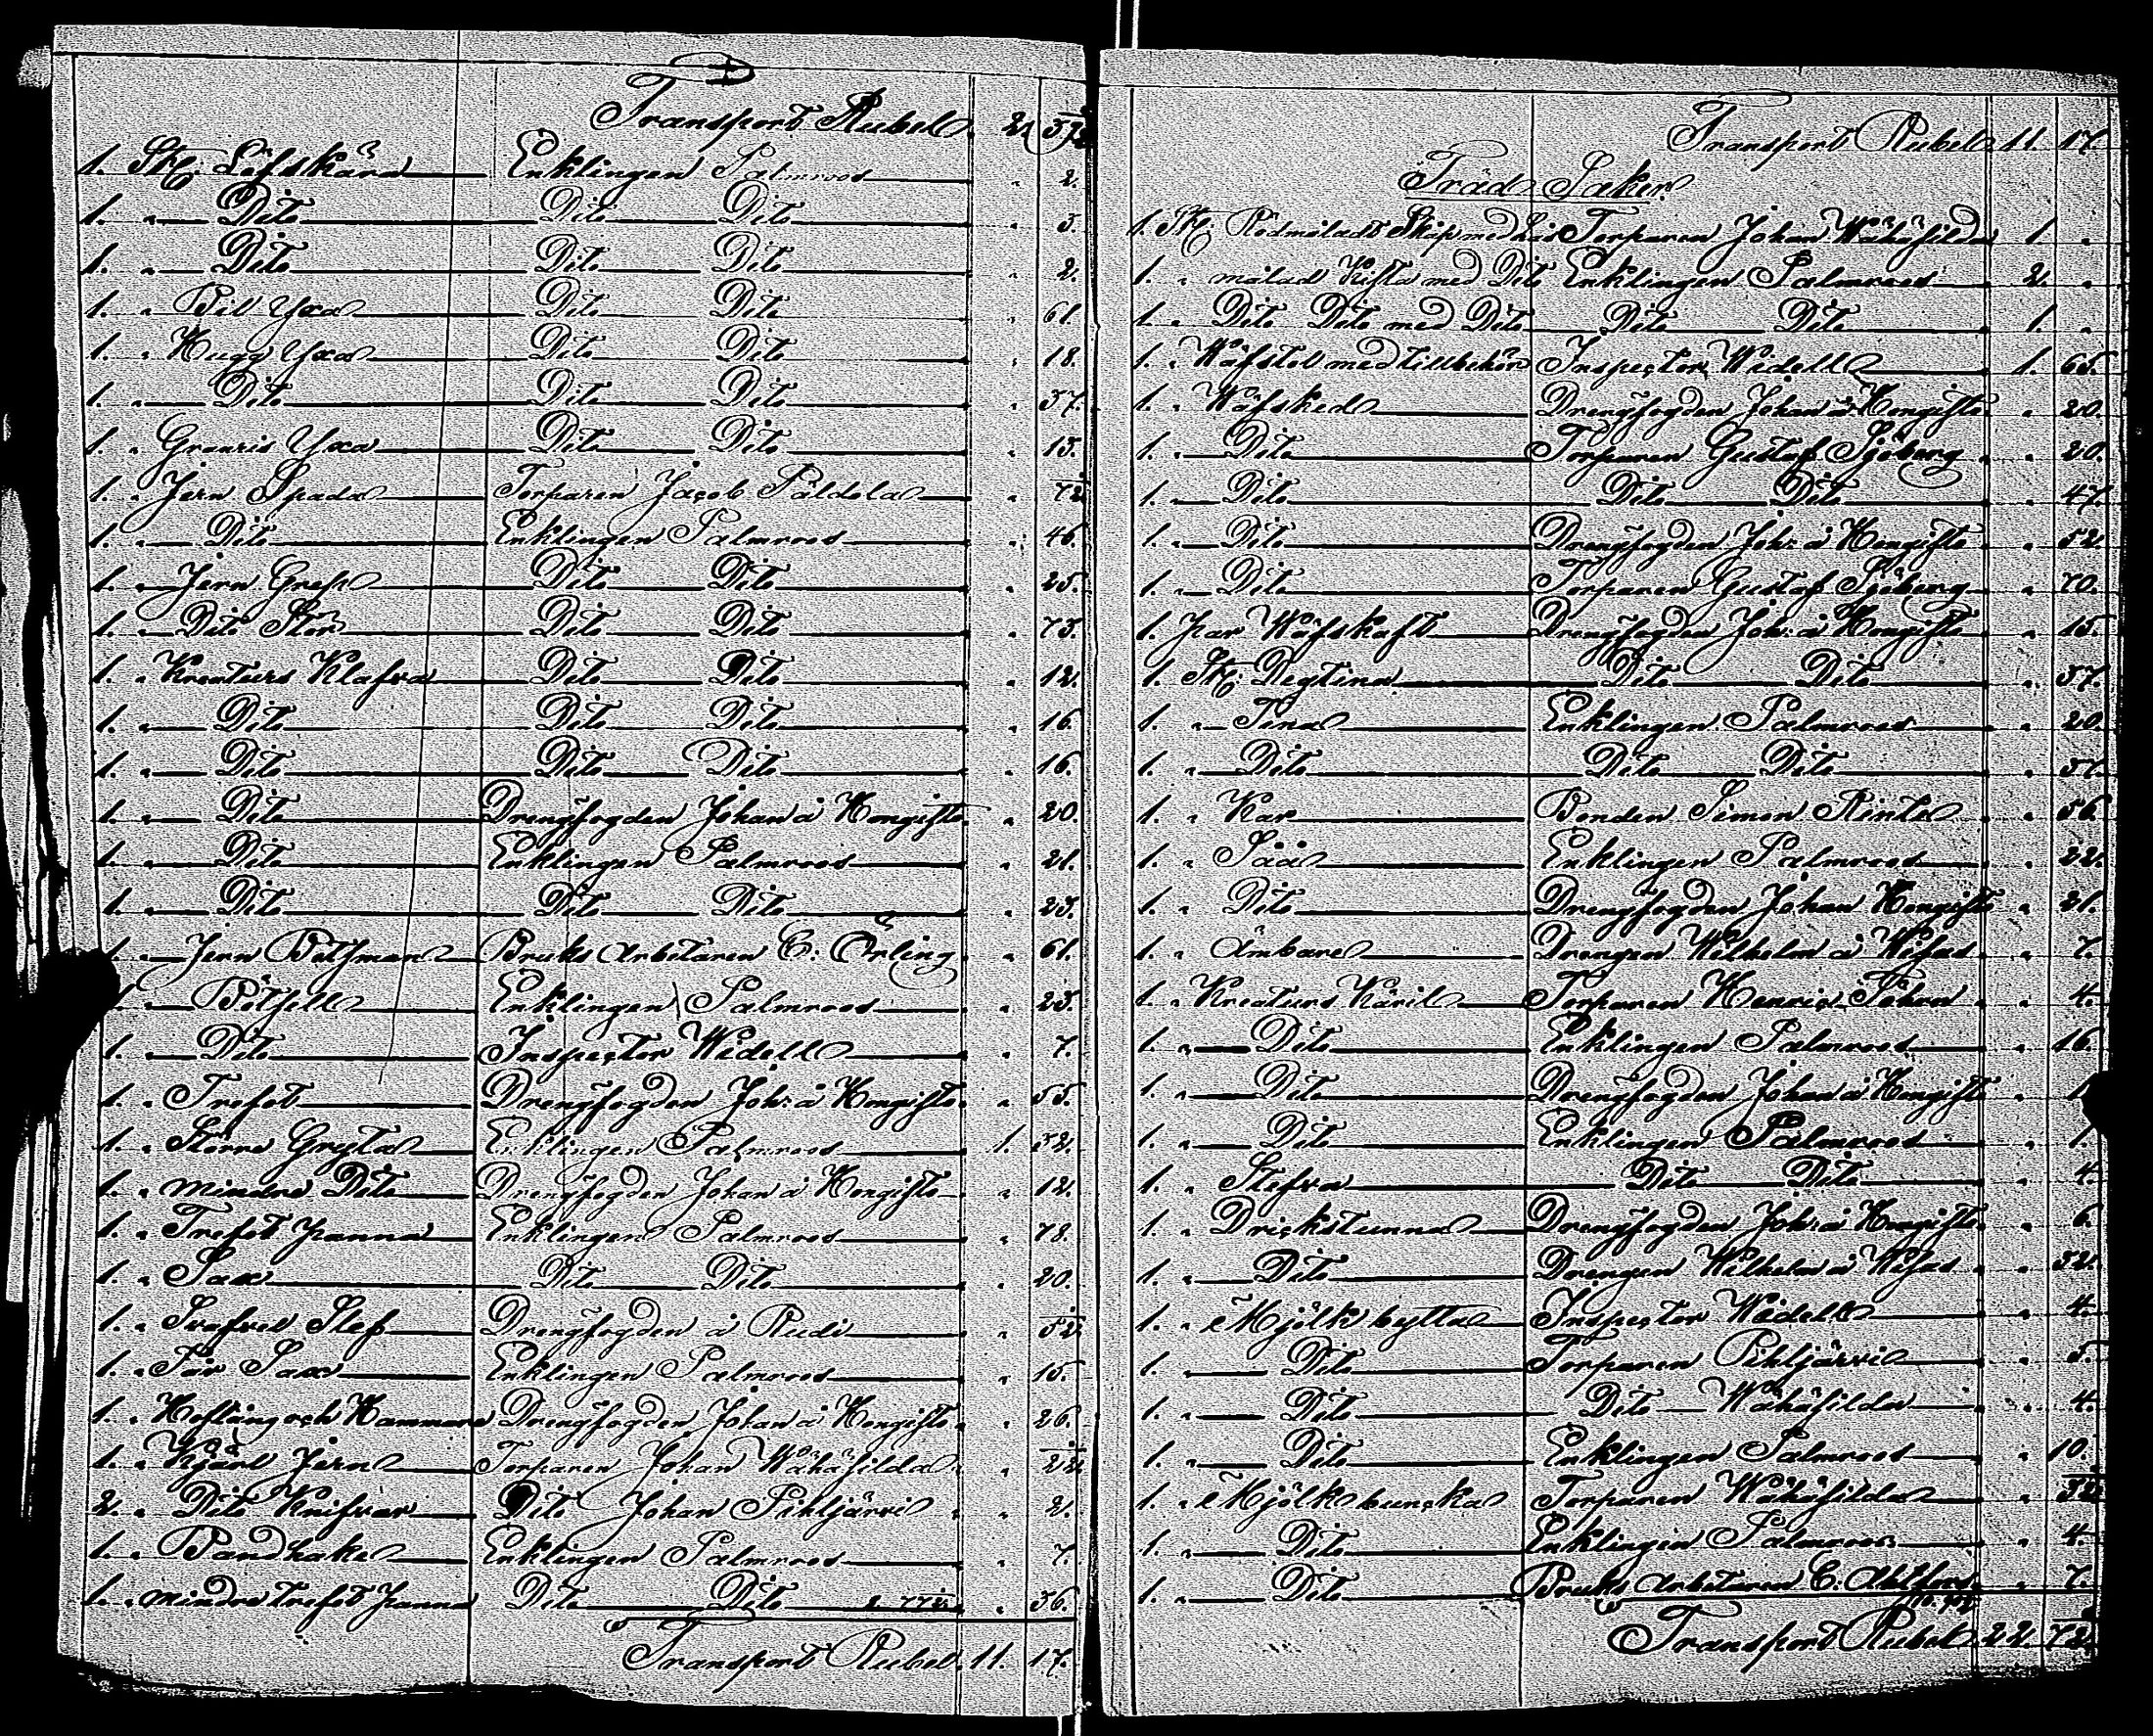 Transport Rubel. 2. 37.
1. Stk: Löfskära Enklingen Palmroos " 2.
1. " Dito Dito Dito " 5.
1. " Dito Dito Dito " 2.
1. " Bil Yxa Dito Dito " 61.
1. " Hugg Yxa Dito Dito " 18.
1. " Dito Dito Dito " 37.
1. " Granris Yxa Dito Dito " 13.
1. " Jern Spada Torparen Jacob Päldola
1. " Dito Enklingen Palmroos " 46.
1. " Jern Grep Dito Dito " 25.
1. " Dito Stör Dito Dito " 75.
1. " Kreaturs Klafva Dito Dito " 12.
1. " Dito Dito Dito " 16.
1. " Dito Dito Dito " 16.
1. " Dito Drengfogden Johan å Hongisto " 20.
1. " Dito Enklingen Palmroos " 21.
1. " Dito Dito Dito " 23.
1. " Jern Betsman Bruks Arbetaren C: Örling " 61.
" Betsell Enklingen Palmroos " 23.
1. " Dito Inspector Widell " 7.
1. " Trefot Drengfogden Joh: å Hongisto " 55.
1. " Större Gryta Enklingen Palmroos 1. 32.
1. " mindre Dito Drengfogden Johan å Hongisto " 12.
1. " Trefot panna Enklingen Palmroos " 78.
1. " Sax Dito Dito " 20.
1. " Slef Drengfogden å Rudi "
1. " Får Sax Enklingen Palmroos " 15.
1. " Hoftång och Hammare Drengfogden Johan å Hongisto " 26.
1. " Kjäril Jern Torparen Johan Wähäsilda "
2. " Dito Knifvar Dito Johan Pihljärvi " 2.
1. " Pandhake Enklingen Palmroos " 7.
1. " mindre trefot panna Dito Dito " 36.
Transport Rubel. 11. 17.
Transport Rubel 11. 17.
Träd Saker
1. Stk: Rödmåladt Skåp med Lås Torparen Johan Wähäsilda 1. "
1. " målad Kista med Dito Enklingen Palmroos 2. "
1. " Dito Dito med Dito Dito Dito 1. "
1. " Wäfstol med tillbehör Inspector Widell 1. 65.
1. " Wäfsked Drengfogden Johan å Hongisto " 20.
1. " Dito Torparen Gustaf Sjöberg " 20.
1. " Dito Dito Dito " 47.
1. " Dito Drengfogden Joh: å Hongisto " 52.
1. " Dito Torparen Gustaf Sjöberg " 70.
1. par Wäfskaft Drengfogden Joh: å Hongisto " 15.
1. Stk: Degtina Dito Dito " 57.
1. " Tina Enklingen Palmroos " 20.
1. " Dito Dito Dito " 51.
1. " Kar Bonden Simon Rinta " 56.
1. " Såå Enklingen Palmroos " 22.
1. " Dito Drengfogden Johan Hongisto " 21.
1. " Ämbare Drengen Wilhelm å " 7.
1. " Kreaturs Käril Torparen Henric Johan " 4.
1. " Dito Enklingen Palmroos " 16.
1. " Dito Drengfogden Johan å Hongisto " 1.
1. " Dito Enklingen Palmroos " 1.
1. " Stefva Dito Dito " 4.
1. " Drickstunna Drengfogden Joh: å Hongisto " 6.
1. " Dito Drengen Wilhelm å " 32.
1. " Mjölk bytta Inspector Widell " 4.
1. " Dito Torparen Pihljärvi " 5.
1. " Dito Dito Wähäsilda " 4.
1. " Dito Enklingen Palmroos " 10.
1. " Mjölk buncka Torparen Wähäsilda "
1. " Dito Enklingen Palmroos " 4.
1. " Dito Bruks Arbetaren C: Ahlfors " 7.
Transport Rubel 22.